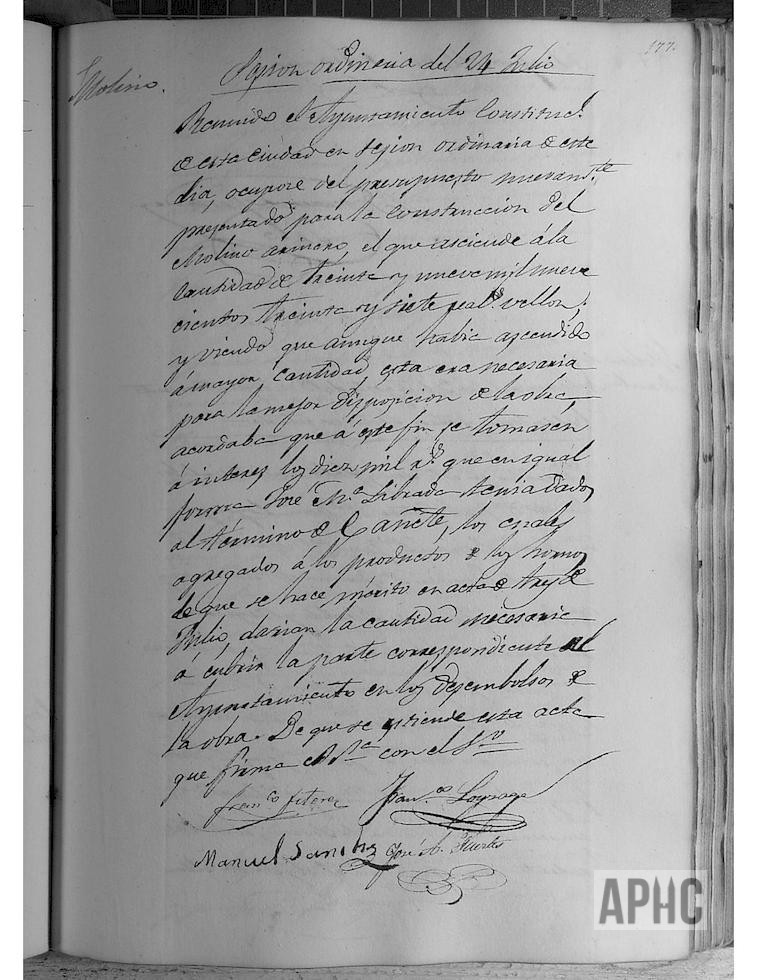 177.
Molino.
Sesion ordinaria del 24 Julio
Reunido el Ayuntamiento Constitucl.
de esta ciudad en sesion ordinaria de este
dia, ocupose del presupuesto nuevamte.
presentado para la construccion del
Molino arinero, el que asciende á la
cantidad de treinta y nueve mil nueve
cientos treinta y siete reals. vellon;
y viendo que aunque habia ascendido
á mayor cantidad esta era necesaria
para la mejor disposicion de la obra,
acordaba que á este fin se tomasen
á interes los diez mil rs. que en igual
forma José Ma. Librada tenia dados
al término de Cañete, los cuales
agregados á los productos de los hornos
de que se hace mérito en acta de tres de
Julio, darian la cantidad necesaria
á cubrir la parte correspondiente al
Ayuntamiento en los desembolsos de
la obra. De que se estiende esta acta
que firma con el
Franco.
Manuel Sanchz José A. Fuertes
APHC